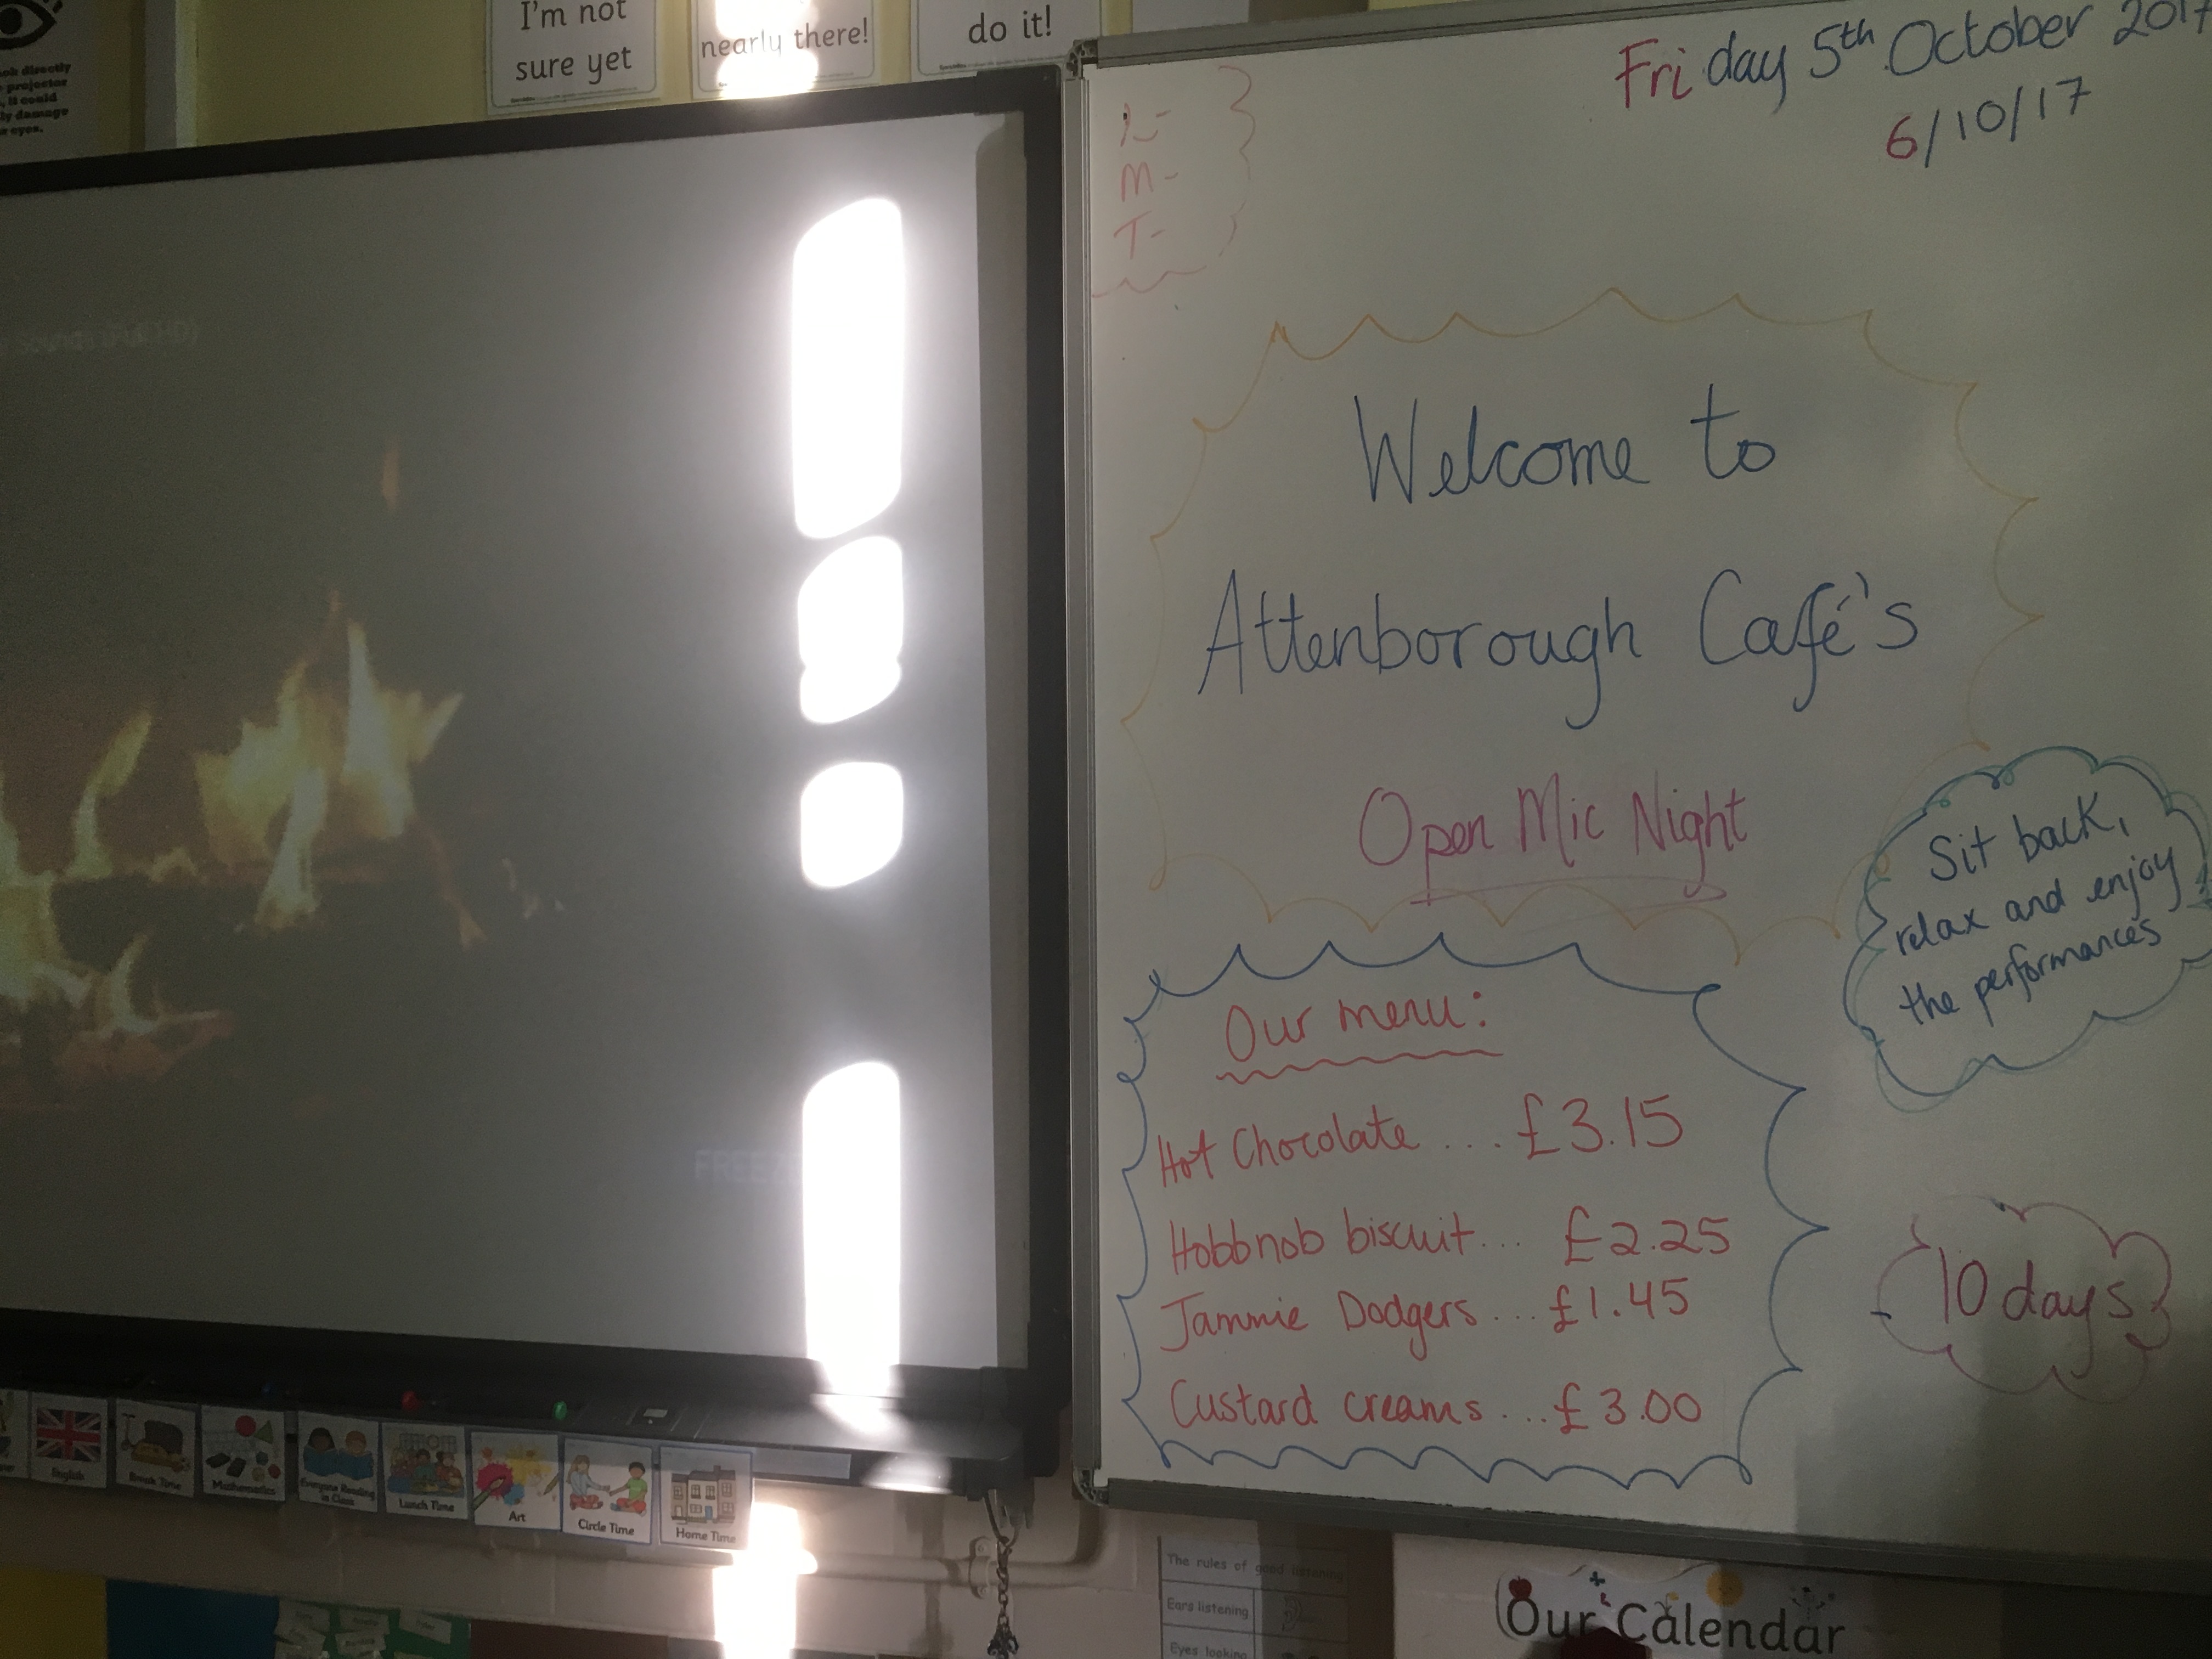 I'm not
sure yet
nearly there!
do it!
ok directly
projector
, it could
ly damage
eyes.
Friday 5th October 2017
6/10/17
M-
T-
Welcome to
Attenborough Café's
Open Mic Night
Sit back,
relax and enjoy
the performances
Our menu:
Hot Chocolate ... £3.15
Hobbnob biscuit... £2.25
Jammie Dodgers... £1.45
Custard creams... £3.00
10 days
FREEZE
English
Break Time
Mathematics
Everyone Reading
in Class
Lunch Time
Art
Circle Time
Home Time
The rules of good listening
Ears listening
Eyes looking
Our Calendar